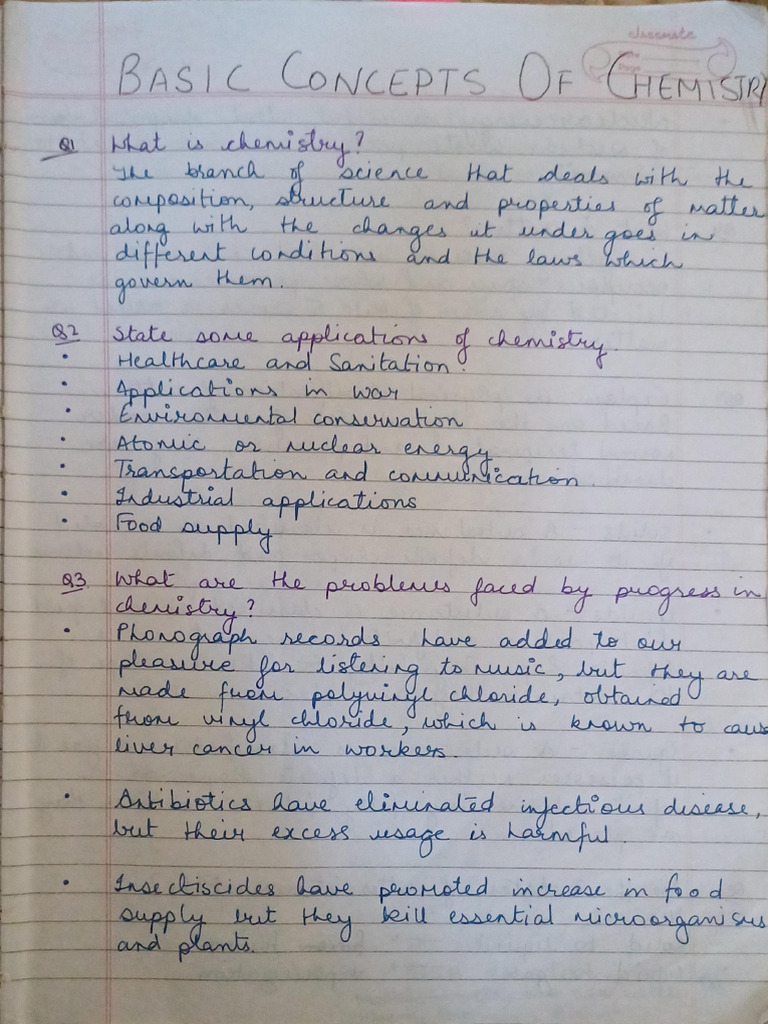 classmate
Date
Page
BASIC CONCEPTS OF CHEMISTRY
Q1 What is chemistry?
The branch of science that deals with the
composition, structure and properties of matter
along with the changes it undergoes in
different conditions and the laws which
govern them.
Q2 State some applications of chemistry.
• Healthcare and Sanitation.
• Applications in war
• Environmental conservation
• Atomic or nuclear energy
• Transportation and communication.
• Industrial applications
• Food supply
Q3 What are the problems faced by progress in
chemistry?
• Phonograph records have added to our
pleasure for listening to music, but they are
made from polyvinyl chloride, obtained
from vinyl chloride, which is known to caus
liver cancer in workers.
• Antibiotics have eliminated infectious disease,
but their excess usage is harmful.
• Insectiscides have promoted increase in food
supply but they kill essential microorganisms
and plants.